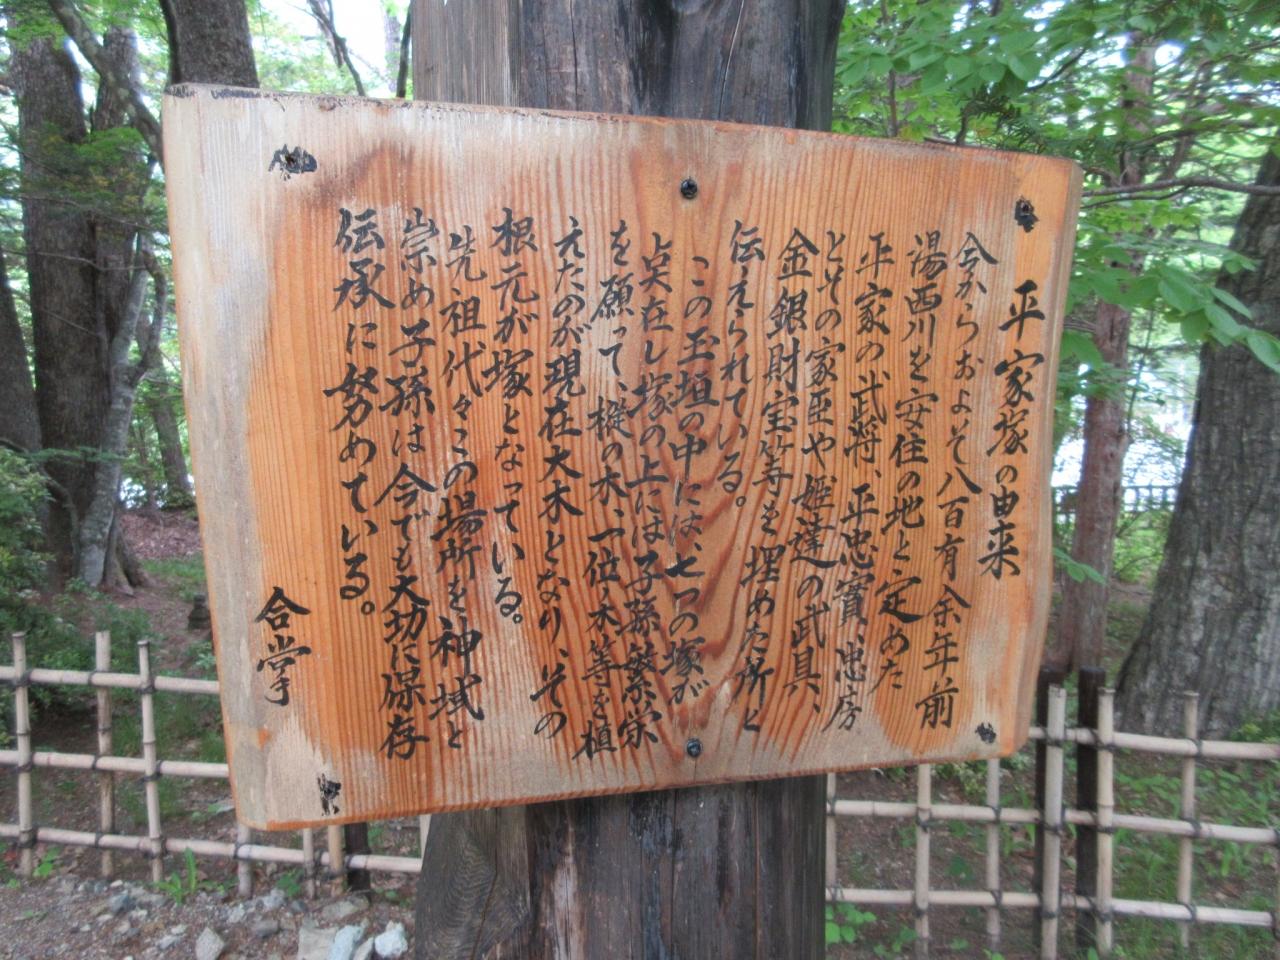 平家塚の由来
今からおよそ八百有余年前
湯西川を安住の地と定めた
平家の武将、平忠實、忠房
とその家臣や姫達の武具、
金銀財宝等を埋めた所と
伝えられている。
この玉垣の中には、七つの塚が
点在し塚の上には子孫繁栄
を願って、樅の木、一位ノ木等を植
えたのが現在大木となり、その
根元が塚となっている。
先祖代々この場所を神域と
崇め子孫は今でも大切に保存
伝承に努めている。
合掌